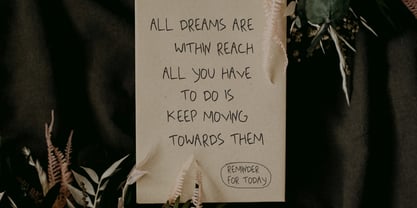 ALL DREAMS ARE
WITHIN REACH
ALL YOU HAVE
TO DO IS
KEEP MOVING
TOWARDS THEM
REMINDER
FOR TODAY